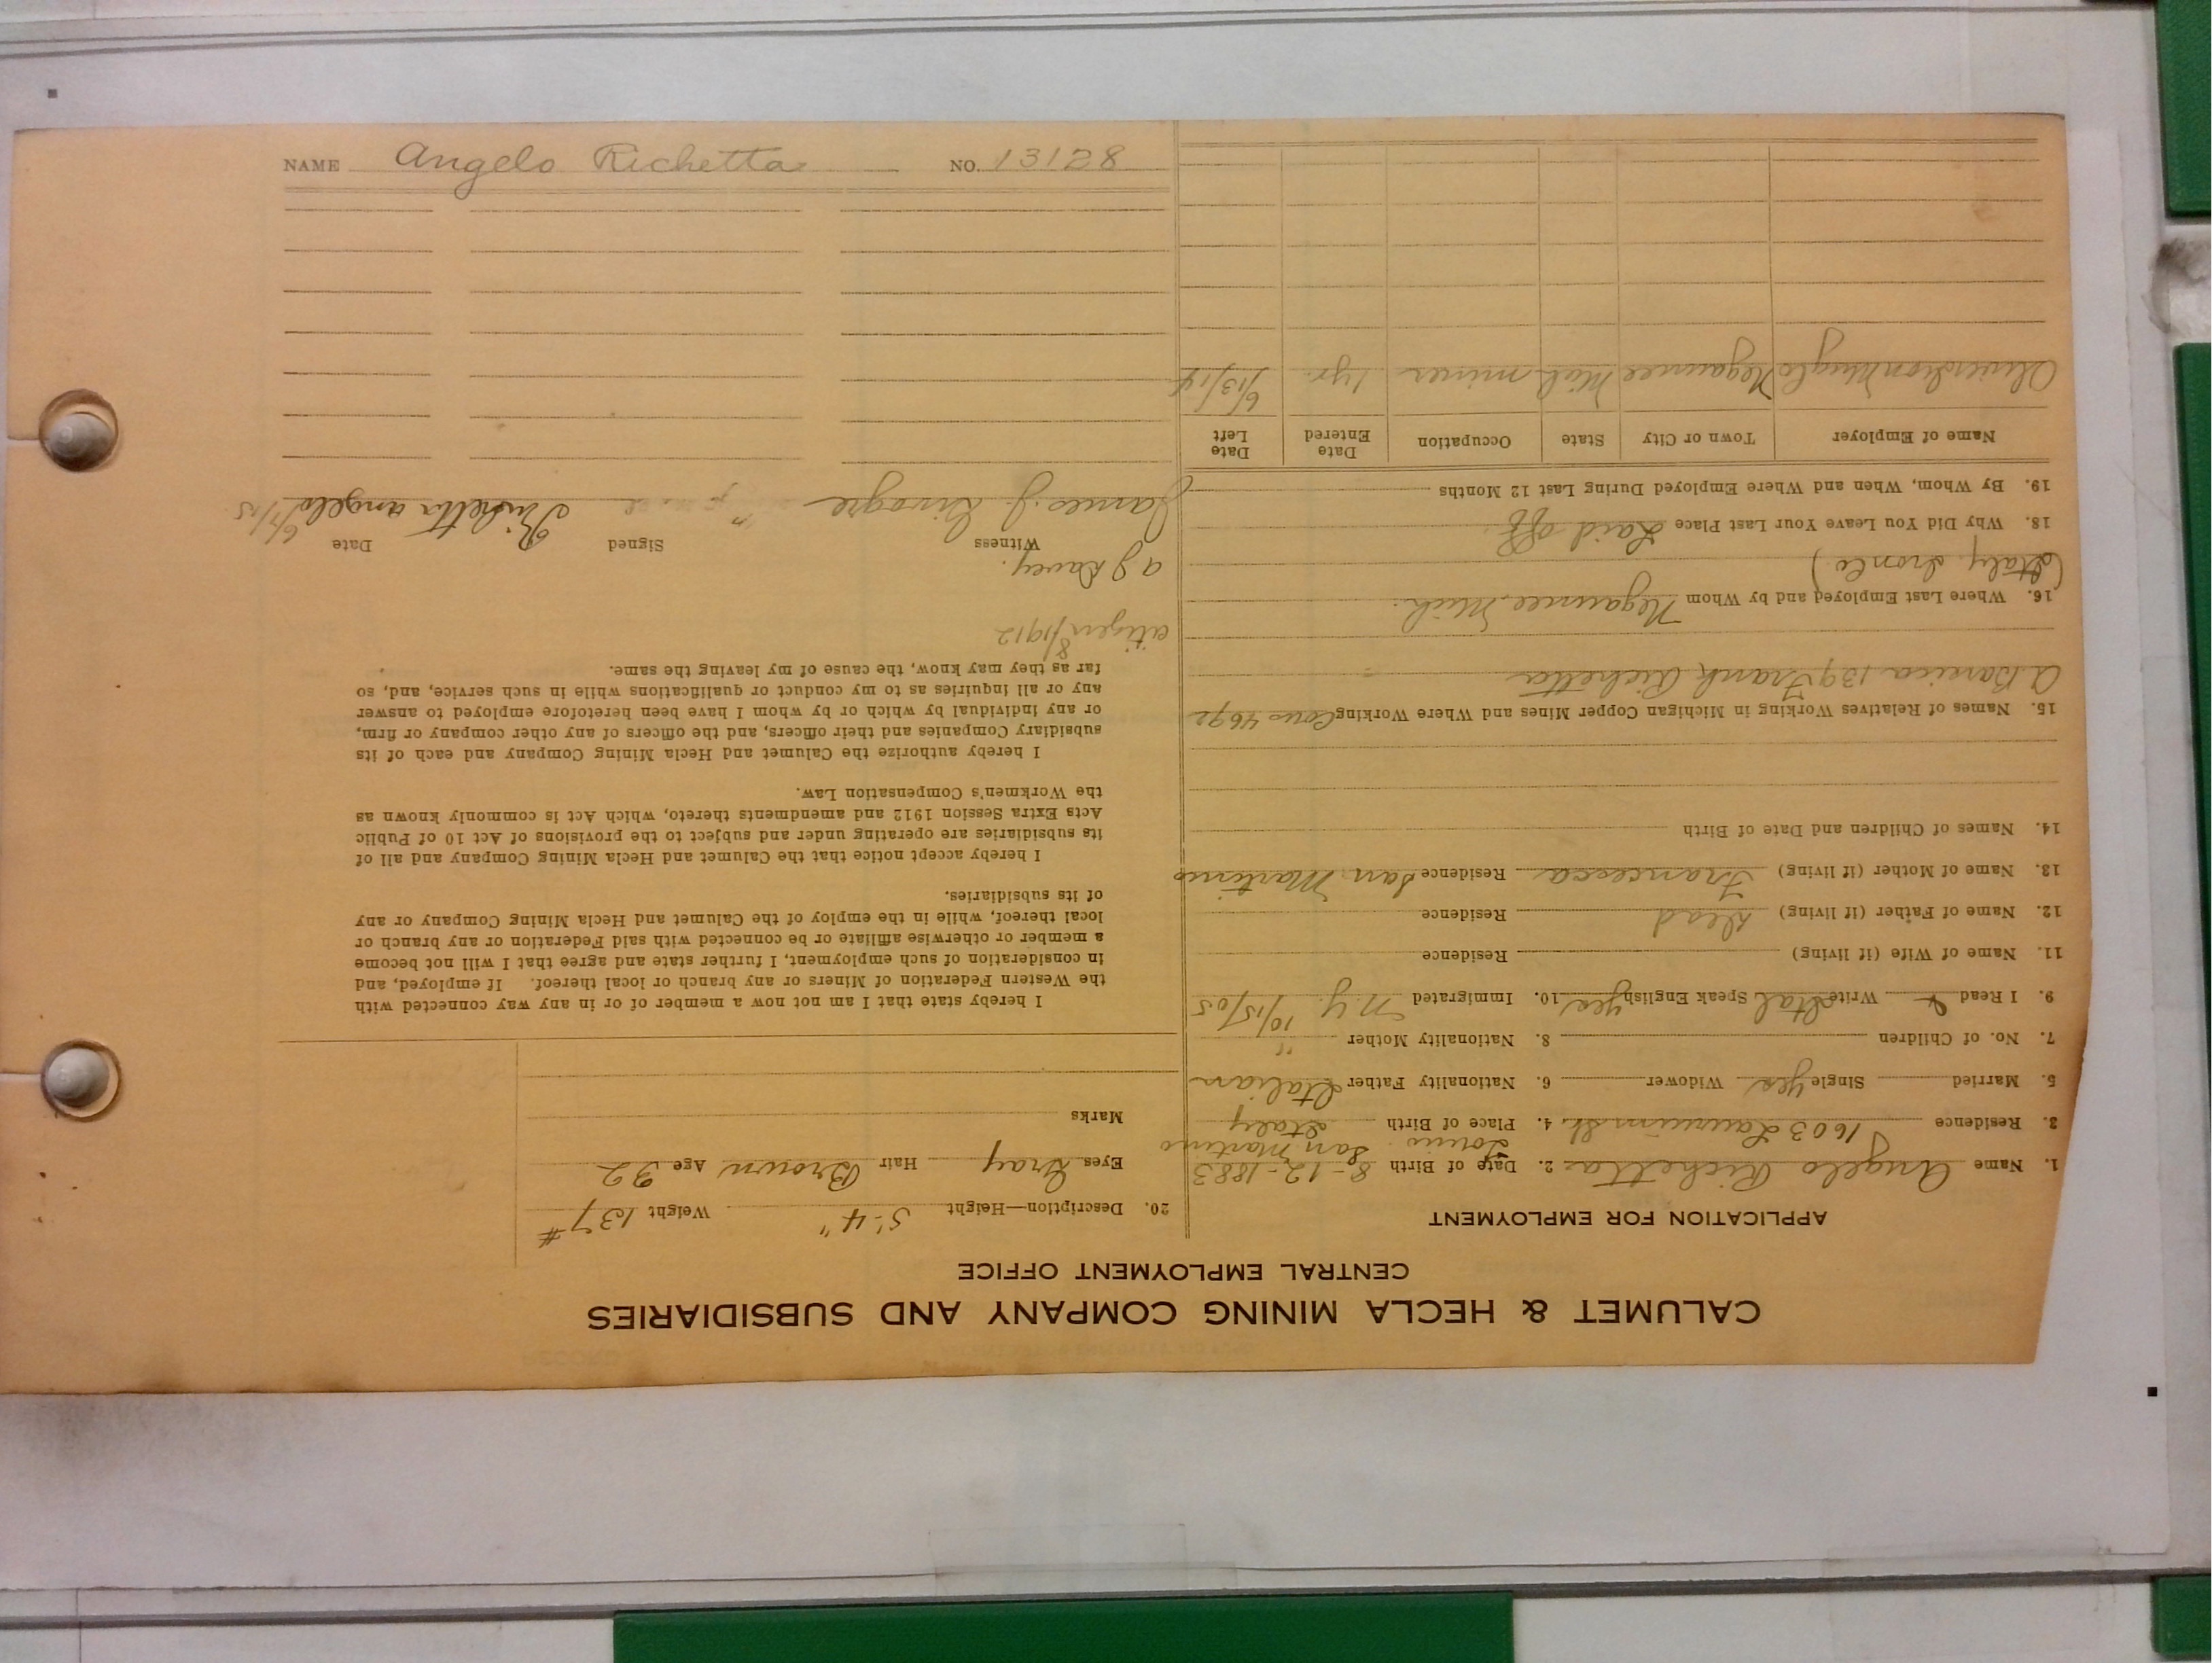 NAME Angelo Richetta NO. 13128
CALUMET & HECLA MINING COMPANY AND SUBSIDIARIES
CENTRAL EMPLOYMENT OFFICE
APPLICATION FOR EMPLOYMENT
1. Name Angelo Richetta 2. Date of Birth 8-12-1883
San Martino
3. Residence 1603 Laurium St. 4. Place of Birth Italy
5. Married Single yes Widower 6. Nationality Father Italian
7. No. of Children 8. Nationality Mother "
9. I Read & Write Ital Speak English yes 10. Immigrated N.Y. 10/15/05
11. Name of Wife (if living) Residence
12. Name of Father (if living) Dead Residence
13. Name of Mother (if living) Francesca Residence San Martino
14. Names of Children and Date of Birth
15. Names of Relatives Working in Michigan Copper Mines and Where Working Cous 4692
Frank Richetta
16. Where Last Employed and by Whom Negaunee, Mich.
(Italy
18. Why Did You Leave Your Last Place Laid off.
19. By Whom, When and Where Employed During Last 12 Months
Name of Employer Town or City State Occupation Date Entered Date Left
Negaunee Mich miner 1 yr. 6/13/14
20. Description—Height 5'-4" Weight 137#
Eyes Gray Hair Brown Age 32
Marks
I hereby state that I am not now a member of or in any way connected with
the Western Federation of Miners or any branch or local thereof. If employed, and
in consideration of such employment, I further state and agree that I will not become
a member or otherwise affiliate or be connected with said Federation or any branch or
local thereof, while in the employ of the Calumet and Hecla Mining Company or any
of its subsidiaries.
I hereby accept notice that the Calumet and Hecla Mining Company and all of
its subsidiaries are operating under and subject to the provisions of Act 10 of Public
Acts Extra Session 1912 and amendments thereto, which Act is commonly known as
the Workmen's Compensation Law.
I hereby authorize the Calumet and Hecla Mining Company and each of its
subsidiary Companies and their officers, and the officers of any other company or firm,
or any individual by which or by whom I have been heretofore employed to answer
any or all inquiries as to my conduct or qualifications while in such service, and, so
far as they may know, the cause of my leaving the same.
citizen 8/1912
Witness Signed Date
James J. Richetta Angelo 6/7/15